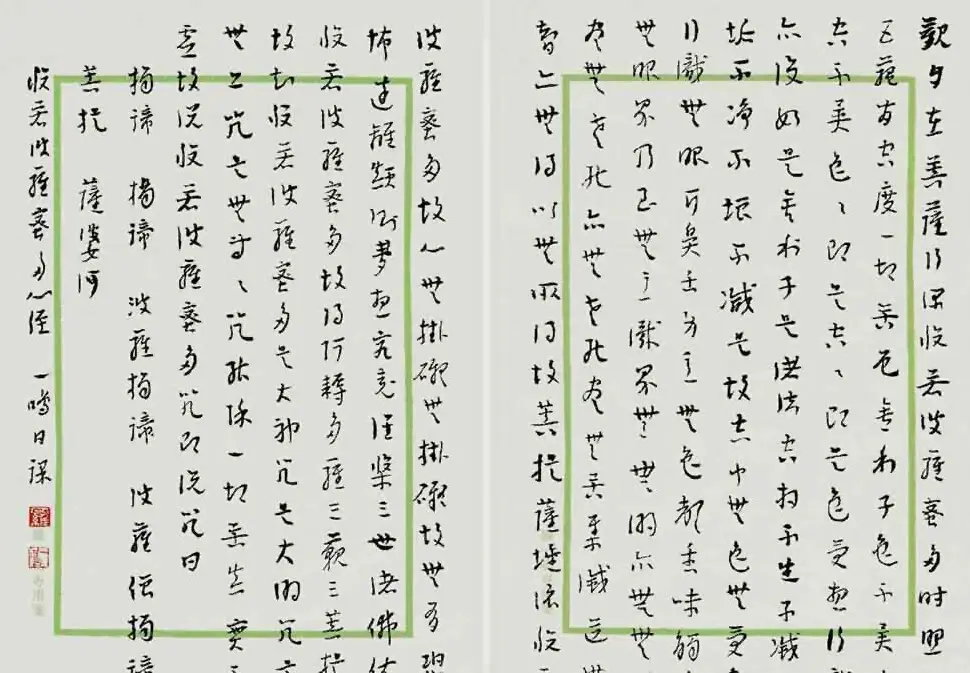 觀自在菩薩行深般若波羅蜜多時照
五蘊皆空度一切苦厄舍利子色不異
空不異色〻即是空〻即是色受想行
亦復如是舍利子是諸法空相不生不滅
垢不淨不增不減是故空中無色無受
行識無眼耳鼻舌身意無色聲香味觸
無眼界乃至無意識界無無明亦無無
盡無老死亦無老死盡無苦集滅道無
智亦無得以無所得故菩提薩埵依般
波羅蜜多故心無掛礙無掛礙故無有恐
怖遠離顛倒夢想究竟涅槃三世諸佛依
般若波羅蜜多故得阿耨多羅三藐三菩提
故知般若波羅蜜多是大神咒是大明咒是
無上咒是無等〻咒能除一切苦真實不
虛故說般若波羅蜜多咒即說咒曰
揭諦 揭諦 波羅揭諦 波羅僧揭諦
菩提 薩婆訶
般若波羅蜜多心經 一鳴日課